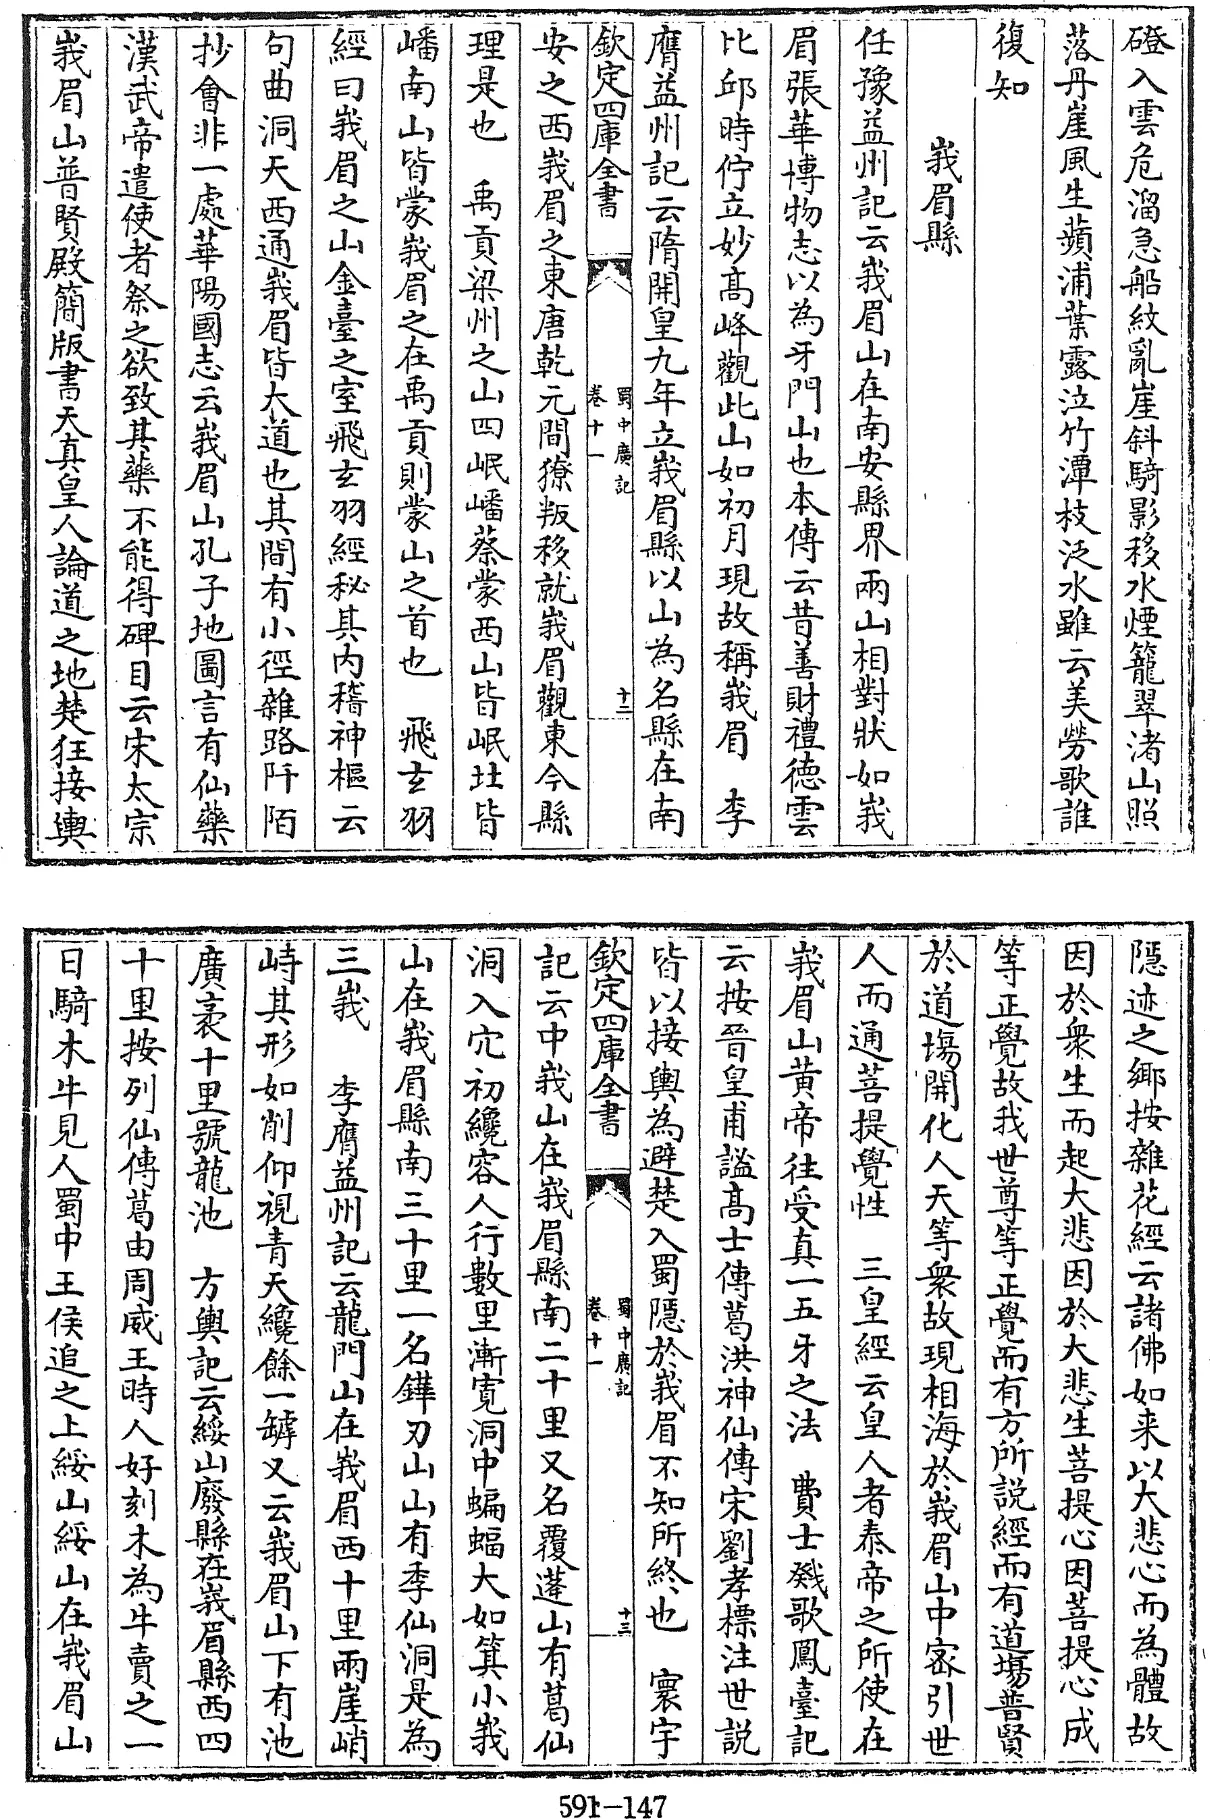 磴入雲危溜急船紋亂崖斜騎影移水煙籠翠渚山照
落丹崖風生蘋浦葉露泣竹潭枝泛水雖云美勞歌誰
復知
峩眉縣
任豫益州記云峩眉山在南安縣界兩山相對狀如峩
眉張華博物志以為牙門山也本傳云昔善財禮德雲
比邱時佇立妙高峰觀此山如初月現故稱峩眉 李
膺益州記云隋開皇九年立峩眉縣以山為名縣在南
欽定四庫全書
蜀中廣記
卷十一
十二
安之西峩眉之東唐乾元間獠叛移就峩眉觀東今縣
理是也 禹貢梁州之山四岷嶓蔡蒙西山皆岷壯皆
嶓南山皆蒙峩眉之在禹貢則蒙山之首也 飛玄羽
經曰峩眉之山金臺之室飛玄羽經秘其内稽神樞云
句曲洞天西通峩眉皆大道也其間有小徑雜路阡陌
抄會非一處華陽國志云峩眉山孔子地圖言有仙藥
漢武帝遣使者祭之欲致其藥不能得碑目云宋太宗
峩眉山普賢殿簡版書天真皇人論道之地楚狂接輿
隱迹之鄉按雜花經云諸佛如来以大悲心而為體故
因於衆生而起大悲因於大悲生菩提心因菩提心成
等正覺故我世尊等正覺而有方所説經而有道塲普賢
於道塲開化人天等衆故現相海於峩眉山中宻引世
人而通菩提覺性 三皇經云皇人者泰帝之所使在
峩眉山黄帝往受真一五牙之法 費士戣歌鳳臺記
云按晉皇甫謐高士傳葛洪神仙傳宋劉孝標注世説
皆以接輿為避楚入蜀隱於峩眉不知所終也 寰宇
欽定四庫全書
蜀中廣記
卷十一
十三
記云中峩山在峩眉縣南二十里又名覆蓬山有葛仙
洞入穴初纔容人行數里漸寛洞中蝙蝠大如箕小峩
山在峩眉縣南三十里一名鏵刃山山有李仙洞是為
三峩 李膺益州記云龍門山在峩眉西十里兩崖峭
峙其形如削仰視青天纔餘一罅又云峩眉山下有池
廣袤十里號龍池 方輿記云綏山廢縣在峩眉縣西四
十里按列仙傳葛由周威王時人好刻木為牛賣之一
日騎木牛見人蜀中王侯追之上綏山綏山在峩眉山
591-147